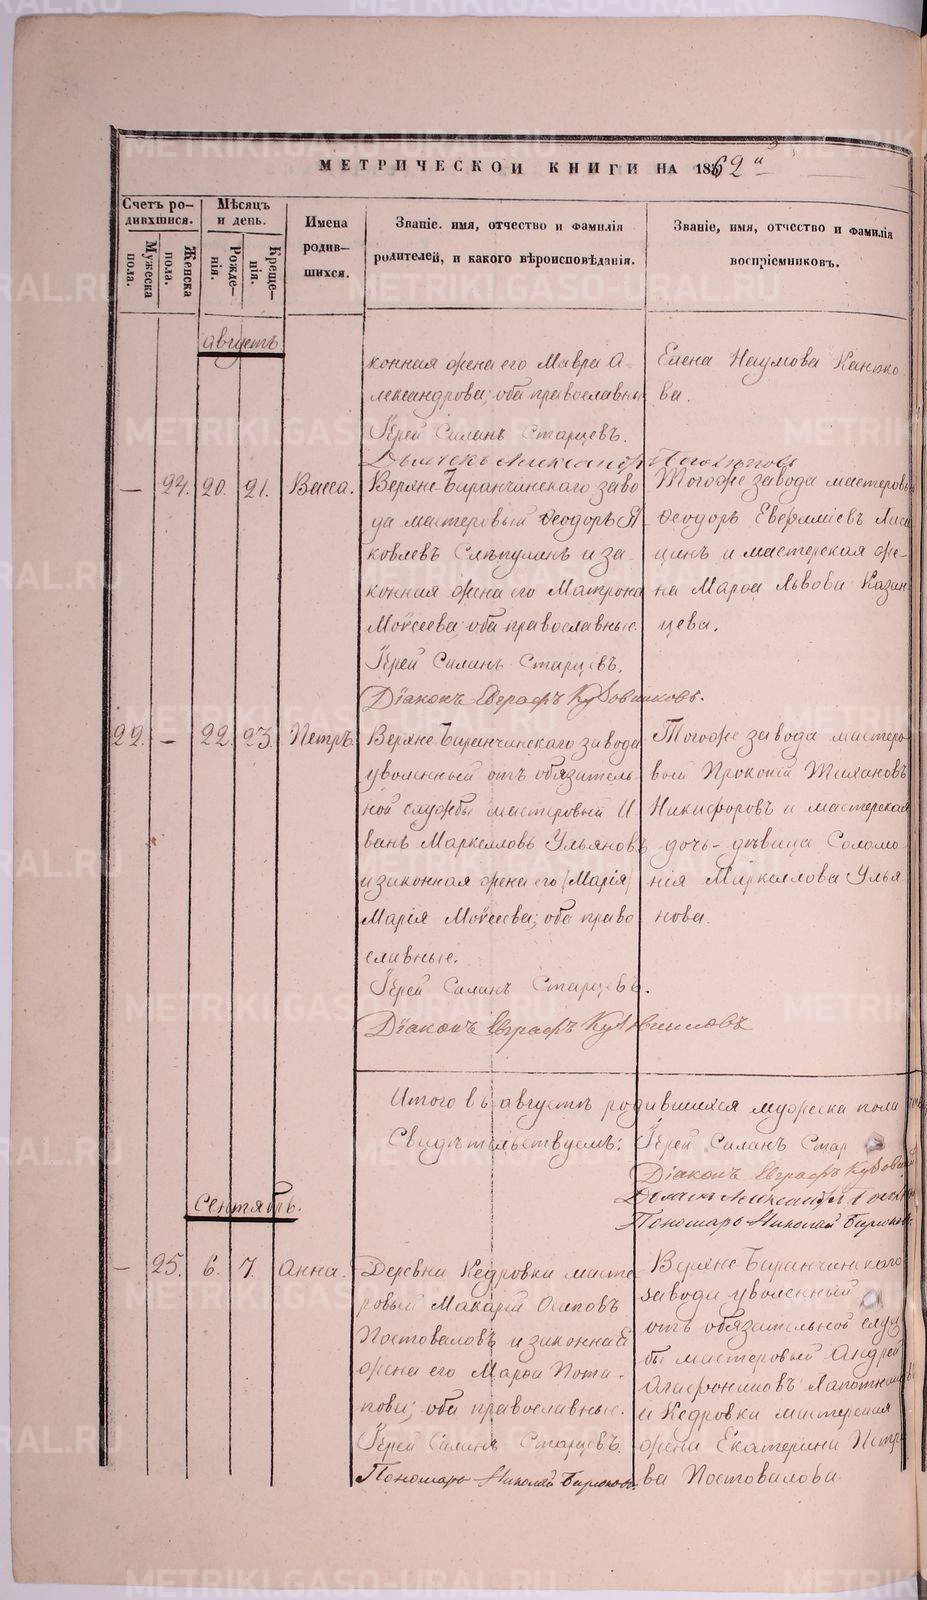 МЕТРИЧЕСКОЙ КНИГИ НА 1862й
Счетъ ро-
дившихся.
Мѣсяцъ
и день.
Мужеска
пола.
Женска
пола.
Рожде-
нія.
Креще-
нія.
Имена
родив-
шихся.
Званіе. имя, отчество и фамилія
родителей, и какого вѣроисповѣданія.
Званіе, имя, отчество и фамилія
воспріемниковъ.
августъ
конная жена его Мавра А-
лександрова; оба православны
Іерей Силанъ Старцевъ.
Дьячекъ Александръ
Елена Наумова
ва.
— 24. 20. 21. Васса.
Верхне-Баранчинскаго заво
да мастеровый Ѳеодоръ Я-
ковлевъ Слѣпухинъ и за-
конная жена его Матрона
Моисеева; оба православные
Іерей Силанъ Старцевъ.
Діаконъ Евграфъ Кубовщиковъ.
Тогоже завода мастеровы
Ѳеодоръ Евфиміевъ Лиси
цинъ и мастерская же-
на Марѳа Львова Казан
цева.
22. — 22. 23. Петръ.
Верхне-Баранчинскаго завода
уволенный отъ обязатель-
ной службы мастеровый И
ванъ Маркелловъ Ульяновъ
и законная жена его (Марія)
Марія Моисеева; оба право
славные.
Іерей Силанъ Старцевъ.
Діаконъ Евграфъ Кубовщиковъ
Тогоже завода мастеро
вый Прокопій Тихановъ
Никифоровъ и мастерская
дочь-дѣвица Соломо-
нія Маркеллова Улья
нова.
Итого въ августѣ родившихся мужеска пола
Свидѣтельствуемъ: Іерей Силанъ Стар
Діаконъ Евграфъ Кубовщи
Дьячекъ Александръ
Пономарь Николай Бирюков
Сентябрь.
— 25. 6. 7. Анна.
Деревни Кедровки масте
ровый Макарій Осиповъ
Постоваловъ и законная
жена его Марѳа Пота-
пова; оба православные.
Іерей Силанъ Старцевъ
Пономарь Николай Бирюковъ.
Верхне Баранчинскаго
завода уволенный
отъ обязательной служ
бы мастеровый Андрей
Агафониковъ
и Кедровки мастерская
жена Екатерина Петро
ва Постовалова
METRIKI.GASO-URAL.RU